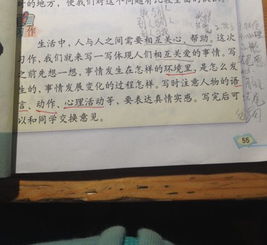 的地方,使我们对这
习作
生活中,人与人之间需要相互关心,帮助。这次
习作,我们就来写一写体现人们相互关爱的事情。写
之前先想一想,事情发生在怎样的环境里,是怎么发
生的,事情发展变化的过程怎样。写时注意人物的语
言、动作、心理活动等,要表达真情实感。写完后可
以和同学交换意见。
55